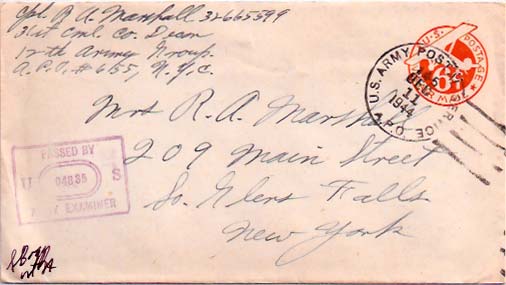 Cpl. R. A. Marshall 32665599
31st Cml. Co. Decon
12th Army Group
A.P.O. #655, N.Y.C.
U.S. POSTAGE
6¢
AIR MAIL
U.S. ARMY POSTAL SERVICE
A.P.O.
DEC
11
1944
Mrs R. A. Marshall
209 Main Street
So. Glens Falls
New York
PASSED BY
U 04835 S
ARMY EXAMINER